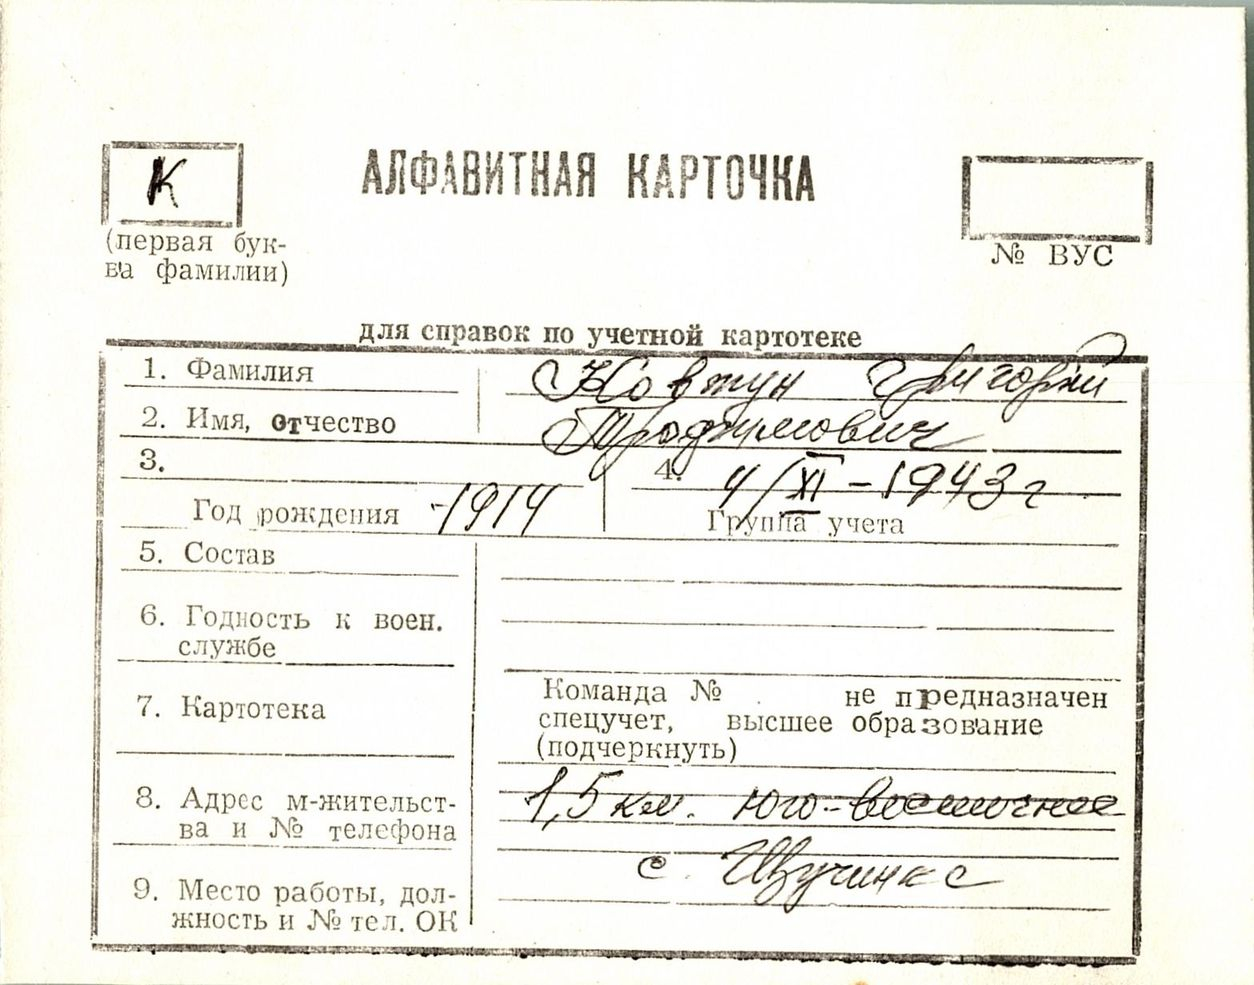 К
АЛФАВИТНАЯ КАРТОЧКА
(первая бук-
ва фамилии)
№ ВУС
для справок по учетной картотеке
1. Фамилия Ковтун Григорий
2. Имя, отчество Трофимович
3. 4. 4/XI – 1943 г
Год рождения -1914 Группа учета
5. Состав
6. Годность к воен.
службе
7. Картотека
Команда № не предназначен
спецучет, высшее образование
(подчеркнуть)
8. Адрес м-жительст-
ва и № телефона
1,5 км. юго-восточнее
с. Щучинка
9. Место работы, дол-
жность и № тел. ОК